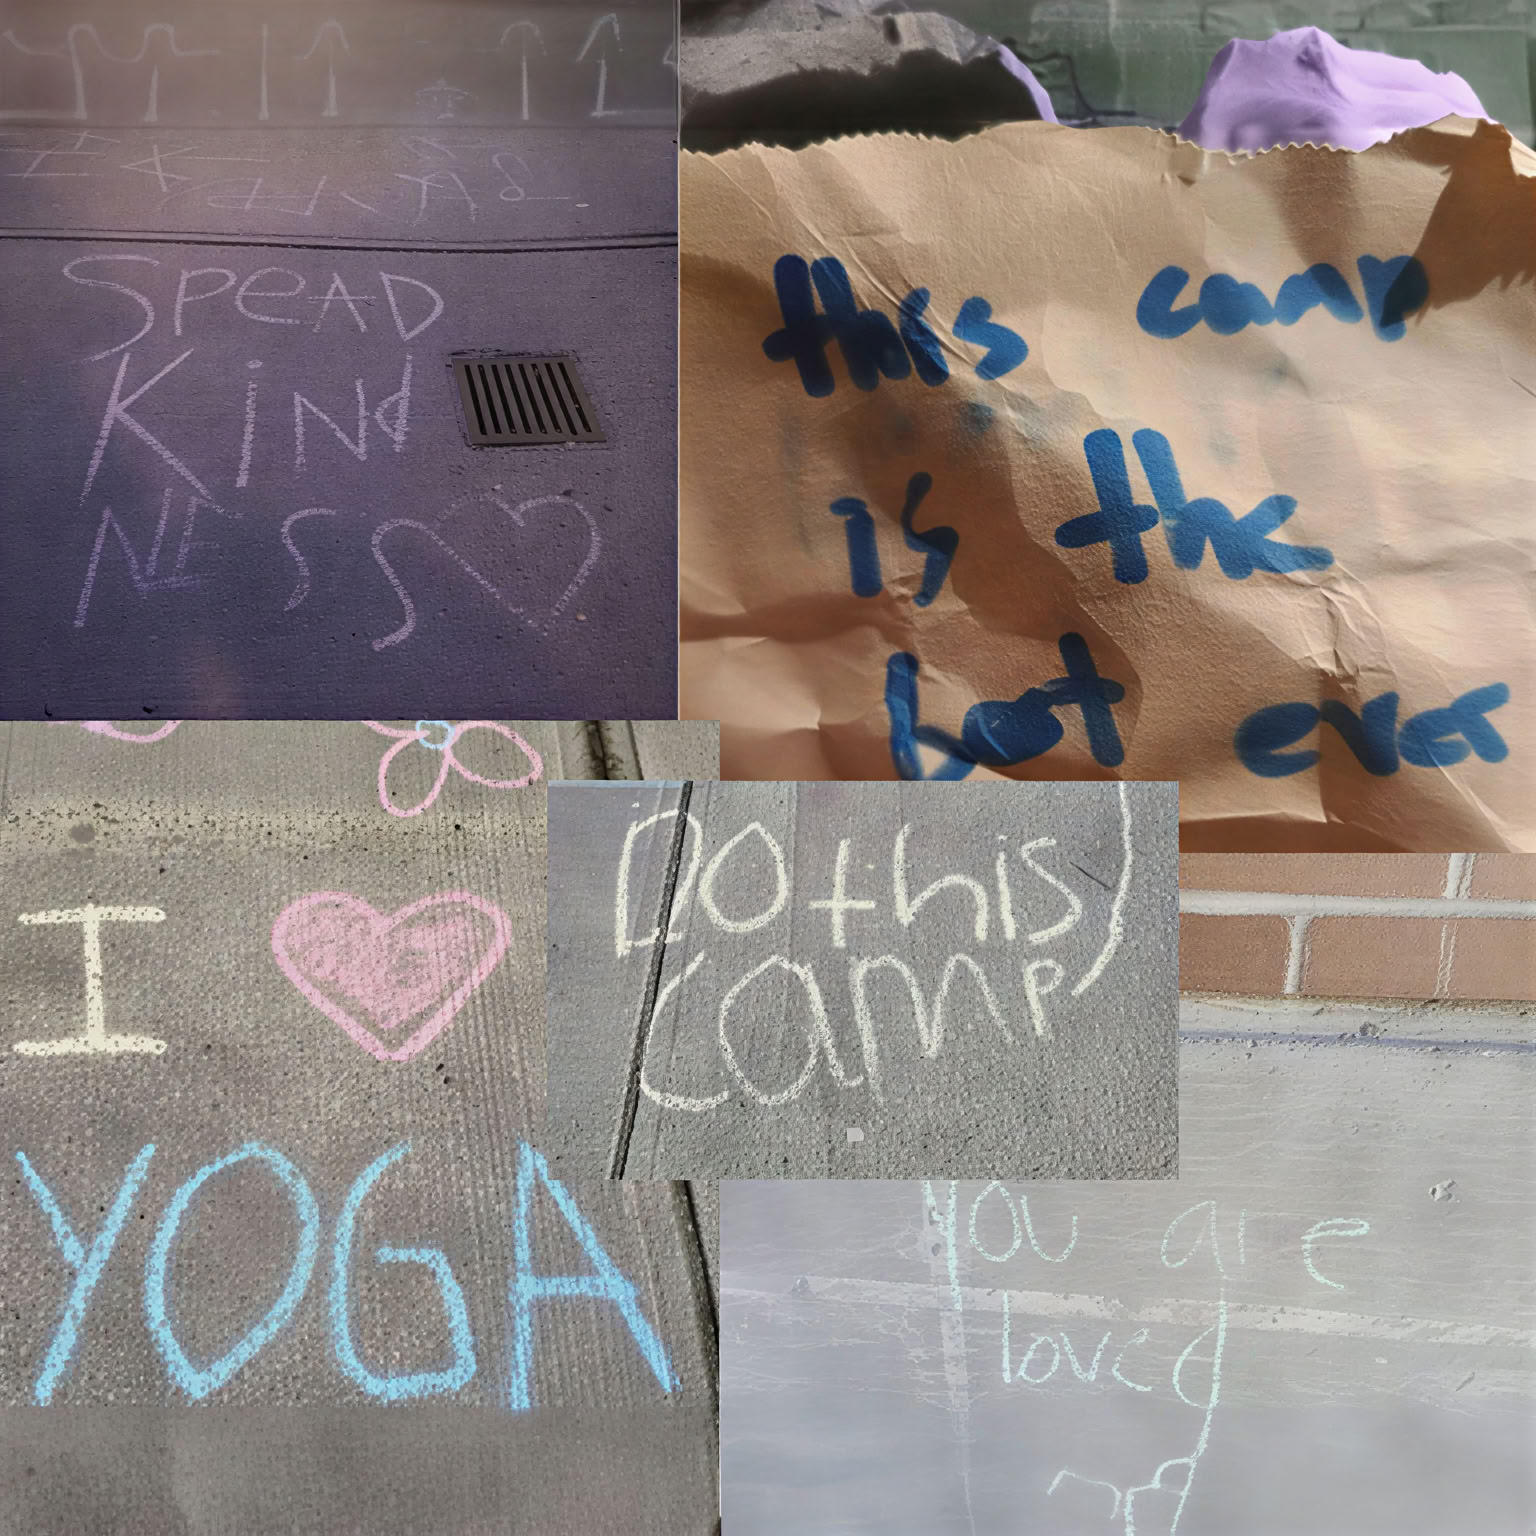 SPEAD
KiNd
NESS
this camp
is the
bot ever
I
YOGA
Do this
camp
you are
loved